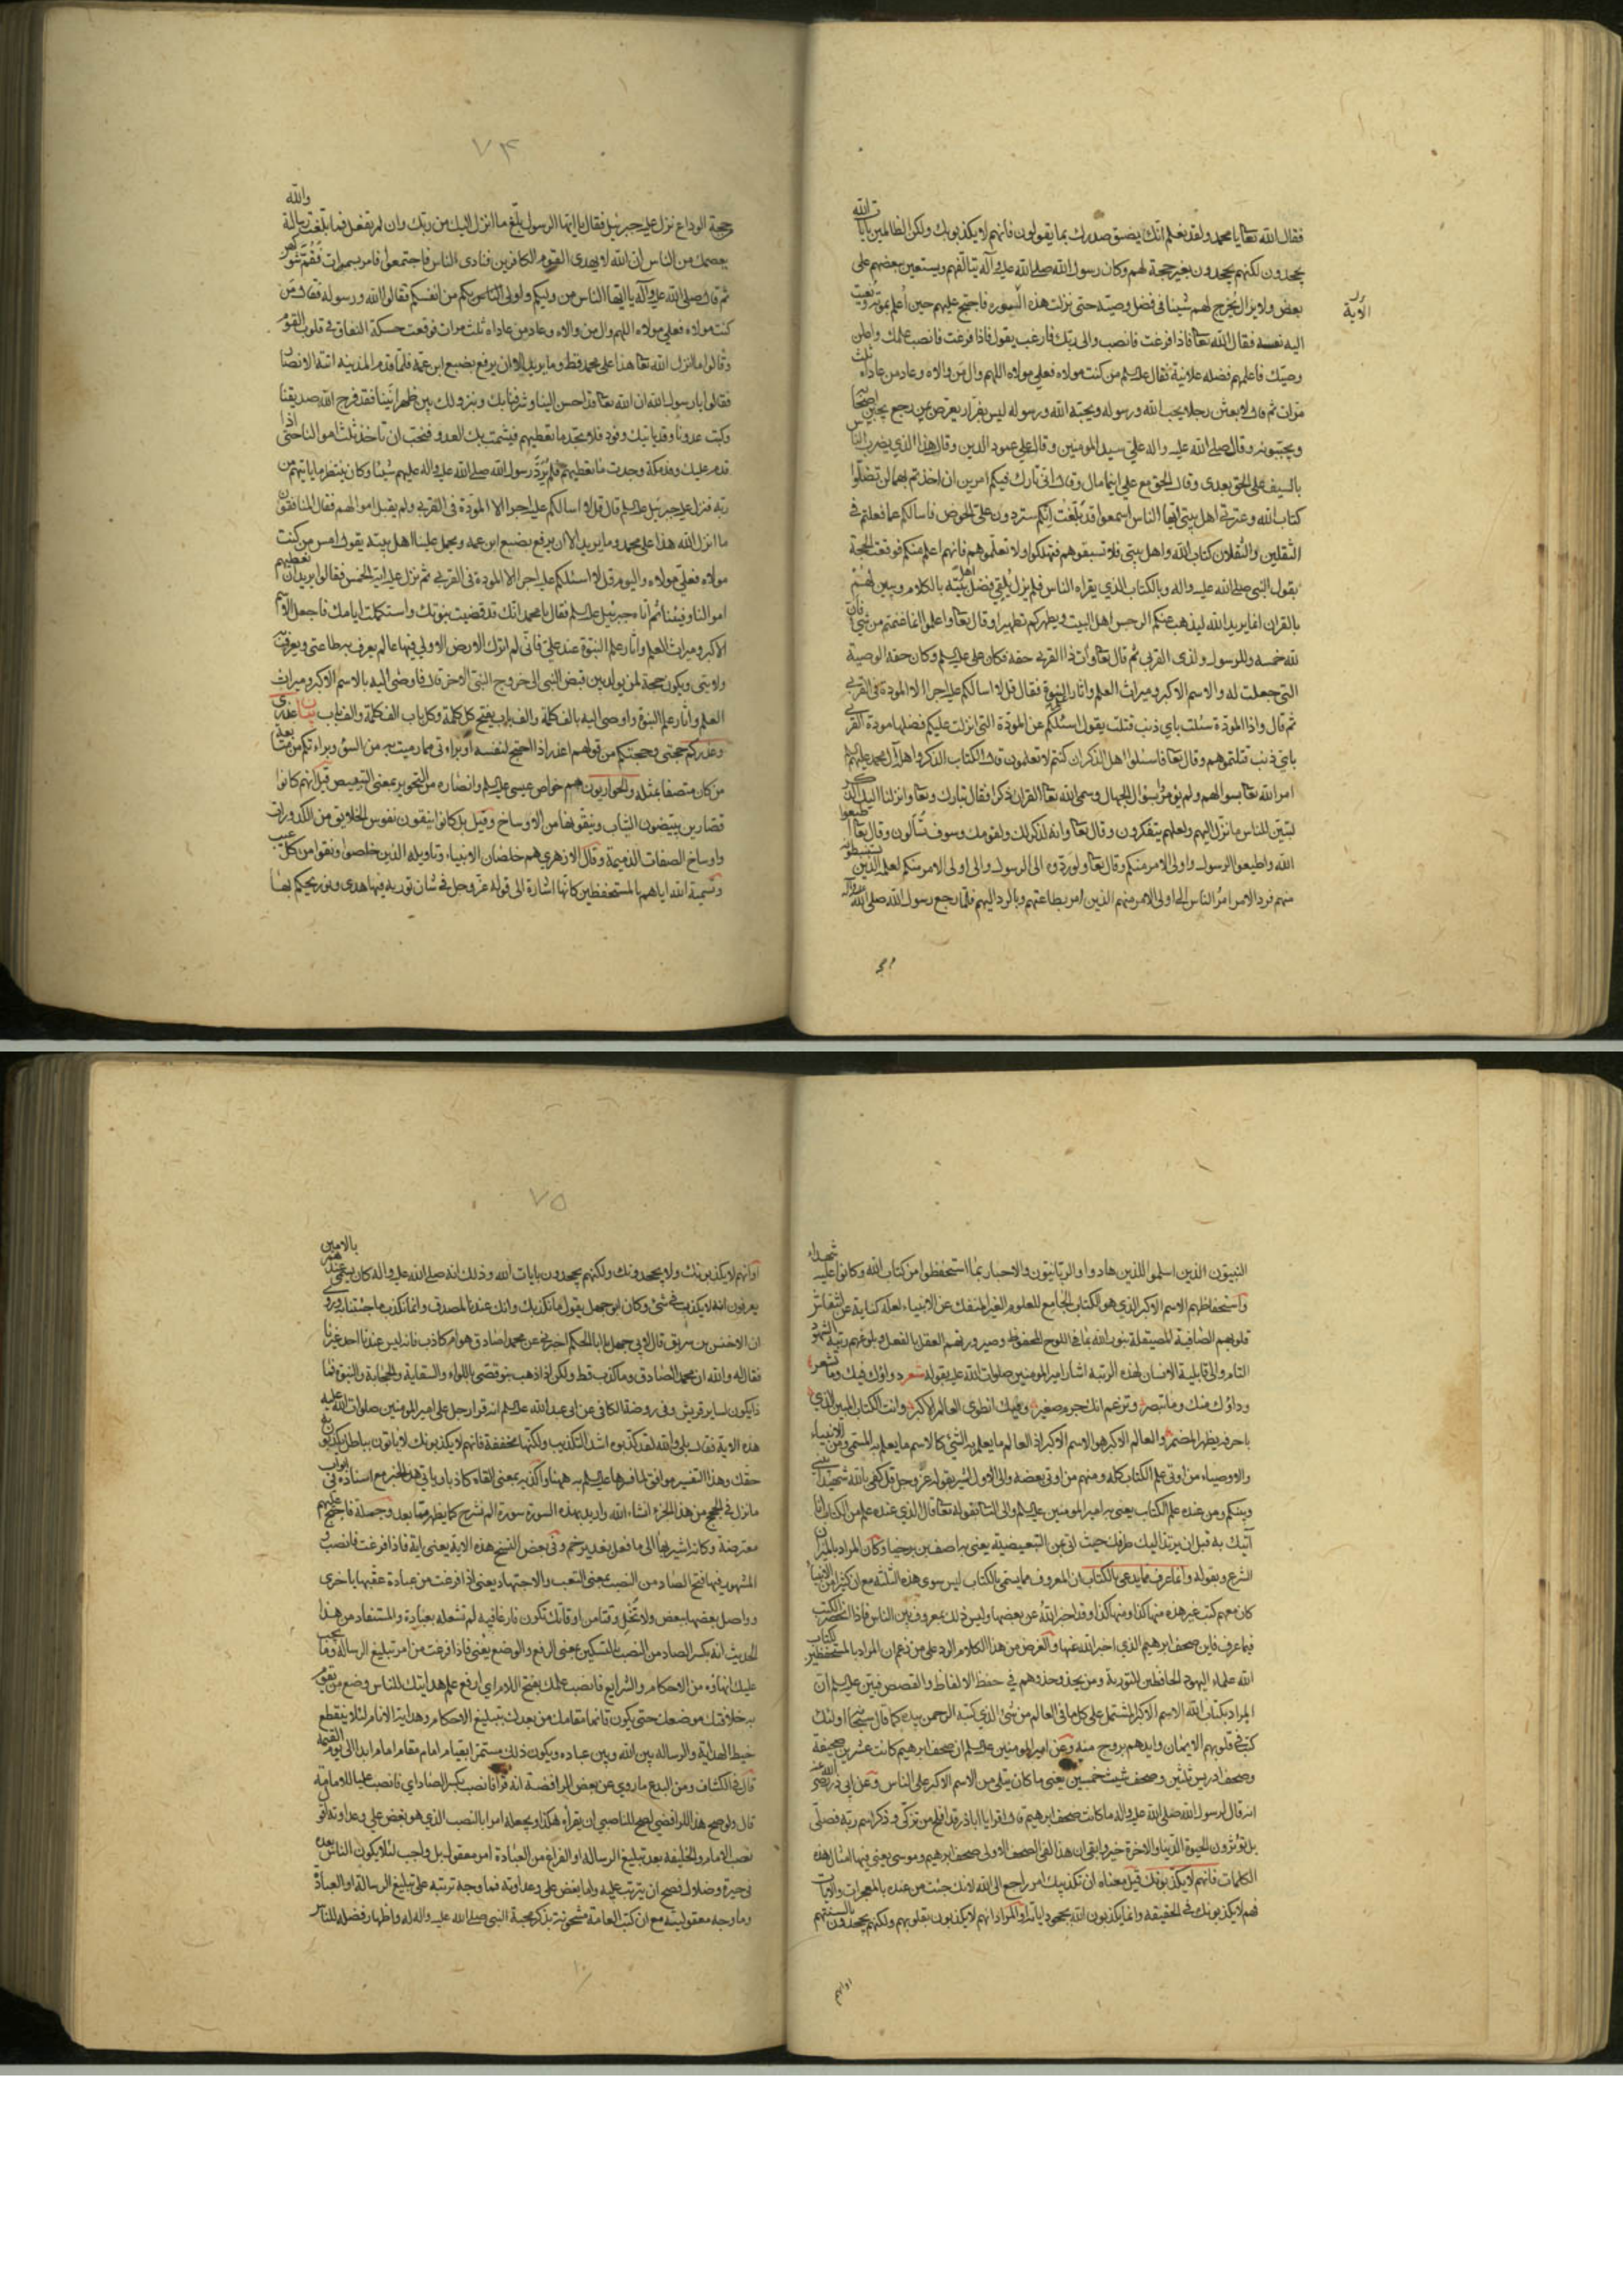 فقال الله تعا يا محمد ولقد نعلم انك يضيق صدرك بما يقولون فانهم لا يكذبونك ولكن الظالمين بايات الله
يجحدون لكنهم يجحدون بغير حجة لهم وكان رسول الله صلى الله عليه وآله يتالفهم ويستعين ببعضهم على
بعض ولا يزال يخرج لهم شيئا فى فضل وصيه حتى نزلت هذه السورة فاحتج عليهم حين اُعلم بموته ونعيت
الاية
اليه نفسه فقال الله تعا فاذا فرغت فانصب والى ربك فارغب يقول فاذا فرغت فانصب علمك واعلن
وصيك فاعلمهم فضله علانية فقال عليه السلم من كنت مولاه فعلي مولاه اللهم وال من والاه وعاد من عاداه ثلث
مرات ثم قال لابعثن رجلا يحب الله ورسوله ويحبه الله ورسوله ليس بفرار يعرض بمن رجع يجبن اصحابه
ويجبنونه وقال صلى الله عليه واله علي سيد المومنين وقال علي عمود الدين وقال هذا الذي يضرب الناس
بالسيف على الحق بعدى وقال الحق مع علي اينما مال وقال انى تارك فيكم امرين ان اخذتم بهما لن تضلوا
كتاب الله وعترتى اهل بيتى ايها الناس اسمعوا قد بلغت انكم ستردون على الحوض فاسالكم عما فعلتم فى
الثقلين والثقلان كتاب الله واهل بيتى فلا تسبقوهم فتهلكوا ولا تعلموهم فانهم اعلم منكم فوقعت الحجة
بقول النبى صلى الله عليه واله وبالكتاب الذى يقراه الناس فلم يزل يلقي فضل اهل بيته بالكلام ويبين لهم
بالقران انما يريد الله ليذهب عنكم الرجس اهل البيت ويطهركم تطهيرا وقال تعا واعلموا انما غنمتم من شئ فان
لله خمسه وللرسول ولذى القربى ثم قال تعا وآت ذا القربى حقه فكان على عليه السلم وكان حقه الوصية
التى جعلت له والاسم الاكبر وميراث العلم واثار النبوة فقال قل لا اسالكم عليه اجرا الا المودة فى القربى
ثم قال واذا المودة سئلت باي ذنب قتلت يقول اسئلكم عن المودة التى انزلت عليكم فضلها مودة القربى
باي ذنب قتلتموهم وقال تعا فاسئلوا اهل الذكر ان كنتم لا تعلمون قال الكتاب الذكر واهله آل محمد عليهم السلم
امر الله تعا بسوالهم ولم يؤمروا بسؤال الجهال وسمى الله تعا القران ذكرا فقال تبارك وتعا وانزلنا اليك الذكر
لتبين للناس ما نزل اليهم ولعلهم يتفكرون وقال تعا وانه لذكر لك ولقومك وسوف تسالون وقال تعا اطيعوا
الله واطيعوا الرسول واولى الامر منكم وقال تعا ولو ردوه الى الرسول والى اولى الامر منكم لعلمه الذين يستنبطونه
منهم فرد الامر امر الناس الى اولى الامر منهم الذين امر بطاعتهم وبالرد اليهم فلما رجع رسول الله صلى الله عليه وآله
٧٤
حجة الوداع نزل عليه جبرئيل فقال يا ايها الرسول بلغ ما انزل اليك من ربك وان لم تفعل فما بلغت رسالته والله
يعصمك من الناس ان الله لا يهدى القوم الكافرين فنادى الناس فاجتمعوا فامر بسمرات فقم شوكهن
ثم قال صلى الله عليه وآله يا ايها الناس من وليكم واولى الناس بكم من انفسكم فقالوا الله ورسوله فقال من
كنت مولاه فعلي مولاه اللهم وال من والاه وعاد من عاداه ثلث مرات فوقعت حسكة النفاق فى قلوب القوم
وقالوا ما انزل الله تعا هذا على محمد قط وما يريد الا ان يرفع بضبع ابن عمه فلما قدم المدينة اتته الانصار
فقالوا يا رسول الله ان الله تعا قد احسن الينا وشرفنا بك وبنزولك بين ظهرانينا فقد فرح الله صديقنا
وكبت عدونا وقد ياتيك وفود فلا تجد ما تعطيهم فيشمت بك العدو فنحب ان تاخذ ثلث اموالنا حتى اذا
قدم عليك وفد مكة وجدت ما تعطيهم فلم يرد رسول الله صلى الله عليه واله عليهم شيئا وكان ينتظر ما ياتيهم من
ربه فنزل عليه جبرئيل عليه السلم قال قل لا اسالكم عليه اجرا الا المودة فى القربى ولم يقبل اموالهم فقال المنافقون
ما انزل الله هذا على محمد وما يريد الا ان يرفع بضبع ابن عمه ويحمل علينا اهل بيته يقول امس من كنت
مولاه فعلي مولاه واليوم قل لا اسئلكم عليه اجرا الا المودة فى القربى ثم نزل عليه اية الخمس فقالوا يريد ان تعطيهم
اموالنا وفيئنا ثم اتاه جبرئيل عليه السلم فقال يا محمد انك قد قضيت نبوتك واستكملت ايامك فاجعل الاسم
الاكبر وميراث العلم واثار علم النبوة عند علي فانى لم اترك الارض الا ولي فيها عالم يعرف به طاعتى ويعرف به
ولايتى ويكون حجة لمن يولد بين قبض النبى الى خروج النبى الاخر قال فاوصى اليه بالاسم الاكبر وميراث
العلم واثار علم النبوة واوصى اليه بالف كلمة والف باب يفتح كل كلمة وكل باب الف كلمة والف باب بيان عذرى
وعذركم حجتى وحجتكم من قولهم اعذر اذا احتج لنفسه او براءتى مما رميت به من السوء وبراءتكم من متابعة
من كان متصفا بمثله والحواريون هم خواص عيسى عليه السلم وانصاره من التحوير بمعنى التبييض قيل انهم كانوا
قصارين يبيضون الثياب وينقونها من الاوساخ وقيل بل كانوا ينقون نفوس الخلايق من الكدورات
واوساخ الصفات الذميمة وقال الازهري هم خلصان الانبياء وتاويله الذين خلصوا ونقوا من كل عيب
وتسمية الله اياهم بالمستحفظين كانها اشارة الى قوله عز وجل فى شان تورية فيها هدى ونور يحكم بها
النبيون الذين اسلموا للذين هادوا والربانيون والاحبار بما استحفظوا من كتاب الله وكانوا عليه شهداء
واستحفاظهم الاسم الاكبر الذي هو الكتاب الجامع للعلوم الغير المنفك عن الانبياء لعله كناية عن انتقاش
قلوبهم الصافية المصيقلة بنور الله بما فى اللوح المحفوظ وصيرورتهم العقل بالفعل وبلوغهم رتبة الشهود
التام والى قابلية الانسان لهذه الرتبة اشار امير المومنين صلوات الله عليه بقوله شعر دواؤك فيك وما تشعر
وداؤك منك وما تبصر وتزعم انك جرم صغير وفيك انطوى العالم الاكبر وانت الكتاب المبين الذي
باحرفه يظهر المضمر والعالم الاكبر هو الاسم الاكبر اذ العالم ما يعلم به الشئ كالاسم ما يعلم به المسمى ومن الانبياء
والاوصياء من اوتى علم الكتاب كله ومنهم من اوتى بعضه والى الاول اشير بقوله عز وجل قل كفى بالله شهيدا بينى
وبينكم ومن عنده علم الكتاب يعنى به امير المومنين عليه السلم والى الثانى بقوله تعا قال الذي عنده علم من الكتاب انا
آتيك به قبل ان يرتد اليك طرفك حيث اتى بمن التبعيضية يعنى به اصف بن برخيا وكان المراد بالميزان
الشرع وبقوله وانما عرف مما يدعى بالكتاب ان المعروف مما يسمى بالكتاب ليس سوى هذه الثلثة مع ان كثيرا من الانبياء
كان معهم كتب غير هذه منها كذا ومنها كذا وقد اخبر الله عن بعضها وليس ذلك بمعروف بين الناس فاذا انحصر الكتب
فيما عرف فاين صحف ابرهيم الذي اخبر الله عنها والغرض من هذا الكلام الرد على من زعم ان المراد بالمستحفظين لكتاب
الله علماء اليهود الحافظين للتورية ومن يحذو حذوهم فى حفظ الالفاظ والقصص فبين عليه السلم ان
المراد بكتاب الله الاسم الاكبر المشتمل على كل ما فى العالم من شئ الذي كتبه الرحمن بيده كما قال سبحانه اولئك
كتب فى قلوبهم الايمان وايدهم بروح منه وعن امير المومنين عليه السلم ان صحف ابرهيم كانت عشرين صحيفة
وصحف ادريس ثلثين وصحف شيث خمسين يعنى ما كان يتلى من الاسم الاكبر على الناس وعن ابى ذر رضى الله عنه
انه قال لرسول الله صلى الله عليه واله ما كانت صحف ابرهيم قال اقرا يا اباذر قد افلح من تزكى وذكر اسم ربه فصلى
بل تؤثرون الحيوة الدنيا والاخرة خير وابقى ان هذا لفى الصحف الاولى صحف ابرهيم وموسى يعنى فيها امثال هذه
الكلمات فانهم لا يكذبونك قيل معناه ان تكذيبك امر راجع الى الله لانك جئت من عنده بالمعجزات والايات
فهم لا يكذبونك فى الحقيقة وانما يكذبون الله بجحود اياته او المراد انهم لا يكذبون بقلوبهم ولكنهم يجحدون بالسنتهم
او انهم
٧٥
او انهم لا يكذبونك ولا يجحدونك ولكنهم يجحدون بايات الله وذلك انه صلى الله عليه واله كان يسمى عندهم بالامين
يعرفون انه لا يكذب فى شئ وكان ابو جهل يقول ما نكذبك وانك عندنا لمصدق وانما نكذب ما جئتنا به وروى
ان الاخنس بن شريق قال لابى جهل يا ابا الحكم اخبرنى عن محمد اصادق هو ام كاذب فانه ليس عندنا احد غيرنا
فقال له والله ان محمد الصادق وما كذب قط ولكن اذا ذهب بنو قصى باللواء والسقاية والحجابة والنبوة فما
ذا يكون لساير قريش وفى روضة الكافى عن ابى عبد الله عليه السلم انه قرا رجل على امير المومنين صلوات الله عليه
هذه الاية فقال بلى والله لقد كذبوه اشد التكذيب ولكنها مخففة فانهم لا يكذبونك لا ياتون بباطل يكذبون به
حقك وهذا التفسير موافق لما فسرها عليه السلم به ههنا واكذبه بمعنى الفاه كاذبا وياتى هذا الخبر مع اسناده فى ابواب
ما نزل فى الحجج من هذا الجزء انشاء الله واريد بهذه السورة سورة الم نشرح كما يظهر مما بعد وجملة فاحتج عليهم
معترضة وكانه اشير بها الى ما فعل بغدير خم وفى بعض النسخ هذه الاية يعنى اية فاذا فرغت فانصب و
المشهور فيها فتح الصاد من النصب بمعنى التعب والاجتهاد يعنى اذا فرغت من عبادة عقبها باخرى
وواصل بعضها ببعض ولا تخل وقتا من اوقاتك تكون فارغا فيه لم تشغله بعبادة والمستفاد من هذا
الحديث انه بكسر الصاد من النصب بالتسكين بمعنى الرفع والوضع يعنى فاذا فرغت من امر تبليغ الرسالة وما يجب
عليك انهاؤه من الاحكام والشرايع فانصب علمك بفتح اللام اى ارفع علم هدايتك للناس وضع من يقوم
به خلافتك موضعك حتى يكون قائما مقامك من بعدك بتبليغ الاحكام وهداية الانام لئلا ينقطع
خيط الهداية والرسالة بين الله وبين عباده ويكون ذلك مستمرا بقيام امام مقام امام ابدا الى يوم القيمة
قال فى الكشاف ومن البدع ما روي عن بعض الرافضة انه قرا فانصب بكسر الصاد اي فانصب عليا للامامة
قال ولو صح هذا للرافضي لصح للناصبي ان يقرأه هكذا ويجعله امرا بالنصب الذي هو بغض علي وعداوته اقول
نصب الامام والخليفة بعد تبليغ الرسالة او الفراغ من العبادة امر معقول بل واجب لئلا يكون الناس بعده
فى حيرة وضلال فصح ان يترتب عليه واما بغض على وعداوته فما وجه ترتبه على تبليغ الرسالة او العبادة
وما وجه معقوليته مع ان كتب العامة مشحونة بذكر محبة النبى صلى الله عليه واله له واظهار فضله للناس